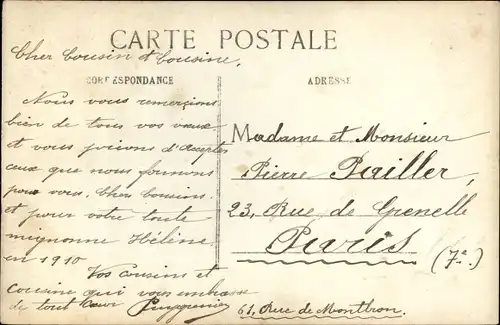 CARTE POSTALE
Cher Cousin et Cousine,
CORRESPONDANCE
ADRESSE
Nous vous remercions
bien de tous vos vœux
et vous prions d'accepter
ceux que nous formons
pour vous, Cher cousins
et pour votre toute
mignonne Hélène
en 1910
Vos Cousins et
Cousine qui vous embrasse
de tout Cœur
Madame et Monsieur
Pierre Pailler,
23, Rue de Grenelle
Paris
(7e)
61, Rue de Montbron.